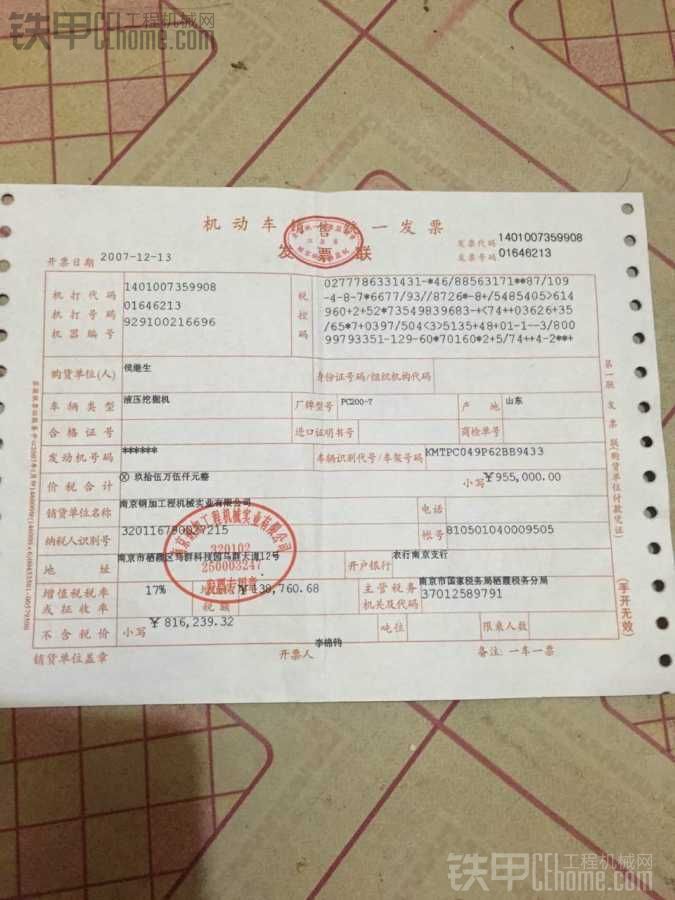 铁甲 工程机械网
CEhome.com
机动车销售统一发票
发票联
发票代码 1401007359908
发票号码 01646213
开票日期 2007-12-13
机打代码 1401007359908
机打号码 01646213
机器编号 929100216696
税控码
0277786331431-*46/88563171**87/109
-4-8-7*6677/93//8726*-8+/5485405>614
960+2+52*73549839683-+<74++03626+35
/65*7+0397/504<3>5135+48+01-1--3/800
99793351-129-60*70160*2+5/74++4-2**+
购货单位(人) 侯继生 身份证号码/组织机构代码
车辆类型 液压挖掘机 厂牌型号 PC200-7 产地 山东
合格证号 进口证明书号 商检单号
发动机号码 ****** 车辆识别代号/车架号码 KMTPC049P62BB9433
价税合计 ⓧ 玖拾伍万伍仟元整 小写 ¥955,000.00
销货单位名称 南京钢加工程机械实业有限公司 电话
纳税人识别号 320116790027215 帐号 810501040009505
地址 南京市栖霞区马群科技园马群大道12号 开户银行 农行南京支行
增值税税率或征收率 17% 税额 ¥138,760.68 主管税务机关及代码 南京市国家税务局栖霞税务分局 37012589791
不含税价 小写 ¥816,239.32 吨位 限乘人数
销货单位盖章 开票人 李锦钧 备注:一车一票
第一联 发票联(购货单位付款凭证)
(手开无效)
南京钢加工程机械实业有限公司
320102
250003247
发票专用章
铁甲 工程机械网
CEhome.com